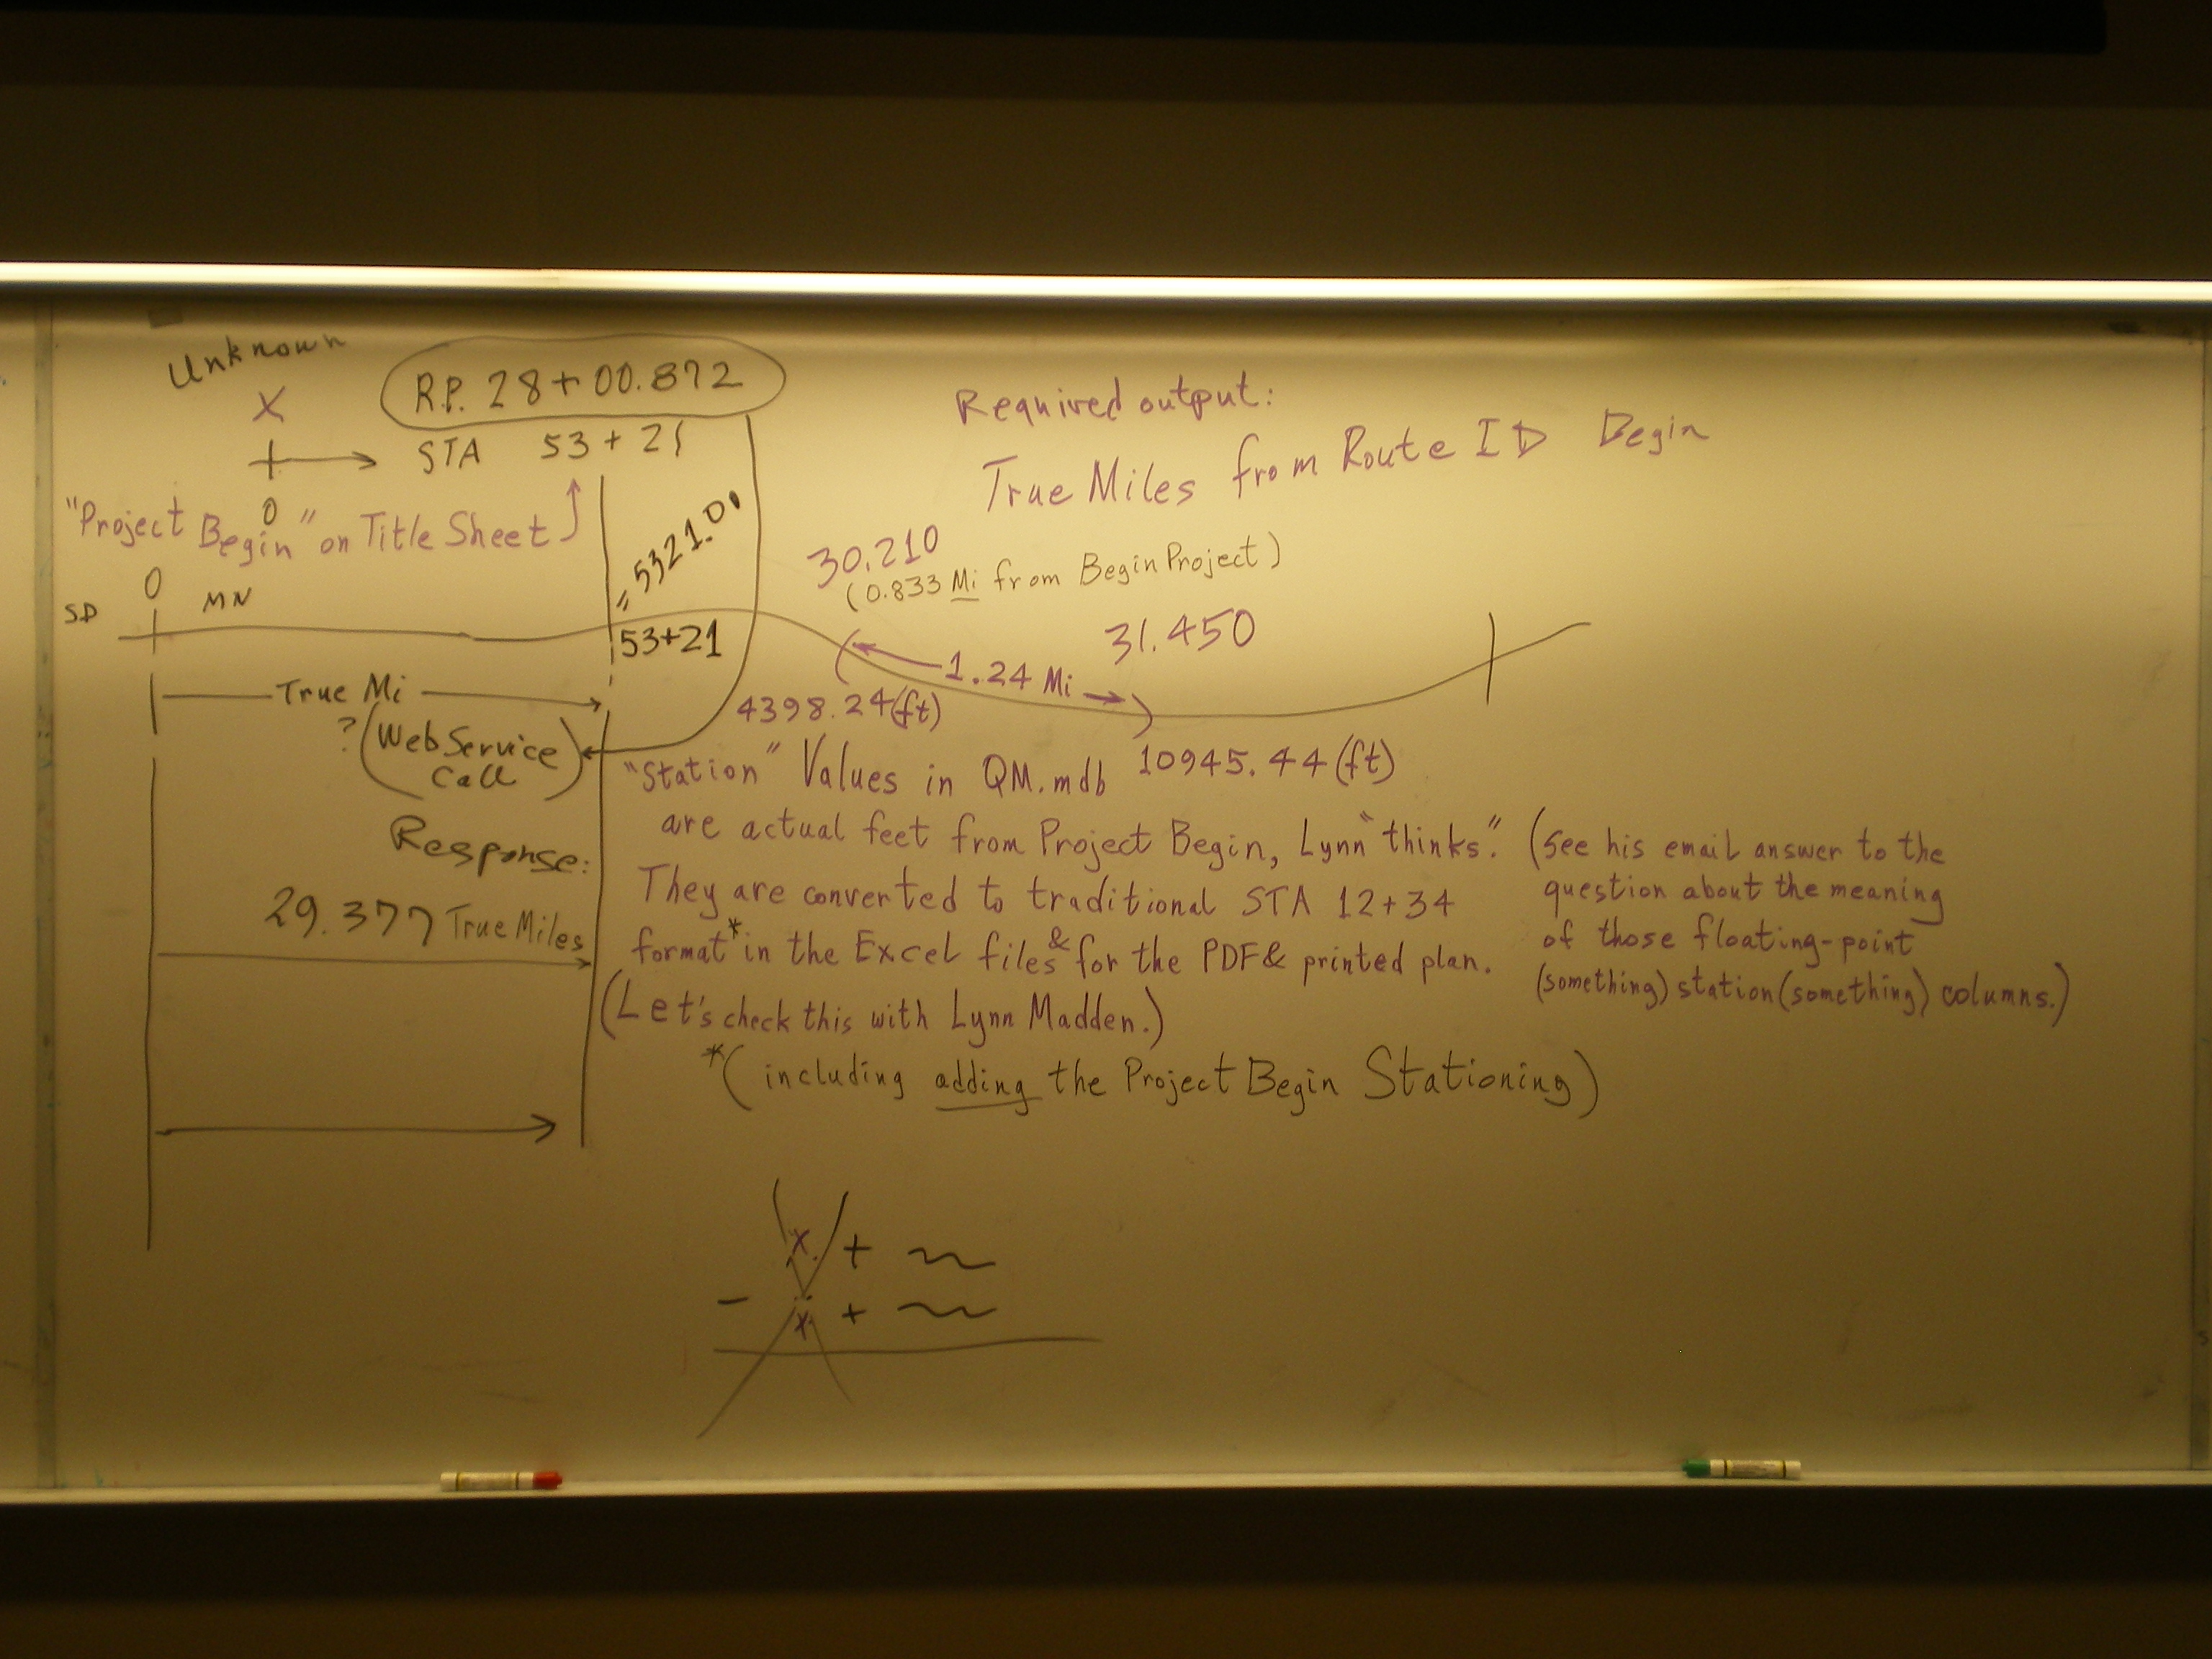 Unknown
X
R.P. 28+00.872
STA 53+21
0
"Project Begin" on Title Sheet
= 5321.0'
0
SD
MN
53+21
True Mi
? (Web Service
Call)
Response:
29.377 True Miles
Required output:
True Miles from Route ID Begin
30.210
(0.833 Mi from Begin Project)
31.450
1.24 Mi
4398.24(ft)
10945.44(ft)
"Station" Values in QM.mdb
are actual feet from Project Begin, Lynn "thinks."
They are converted to traditional STA 12+34
format* in the Excel files & for the PDF & printed plan.
(Let's check this with Lynn Madden.)
(See his email answer to the
question about the meaning
of those floating-point
(something) station (something) columns.)
*(including adding the Project Begin Stationing)
X +
- X +